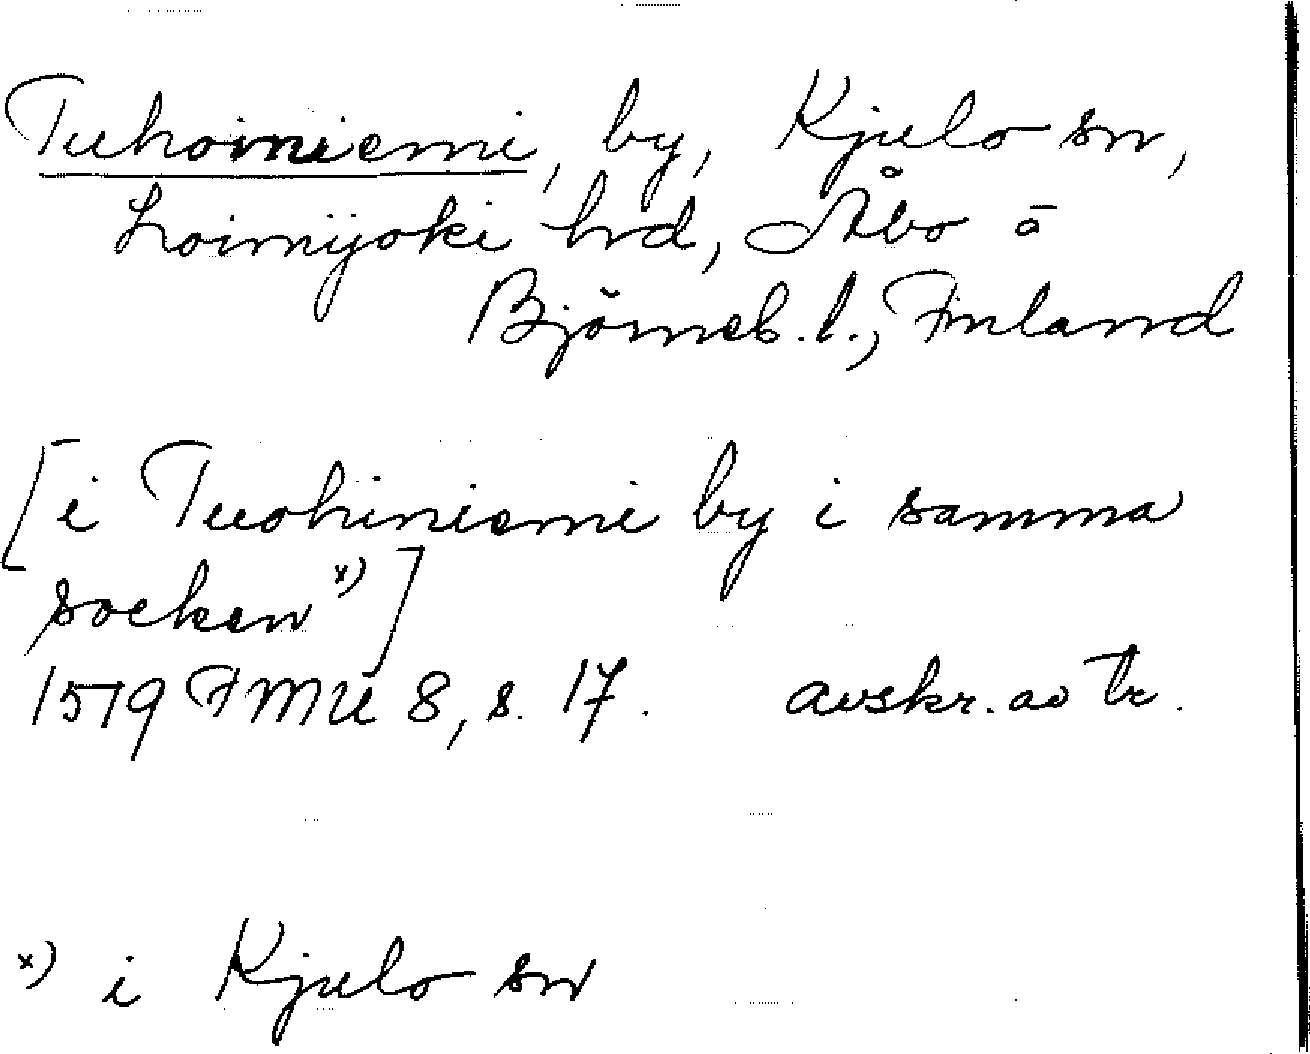 Tuhoiniemi, by, Kjulo sn,
Loimijoki hrd, Åbo o
Björneb. l., Finland
[i Tuohiniemi by i samma
socken x)]
1579 FMU 8, s. 17. avskr. av tr.
x) i Kjulo sn